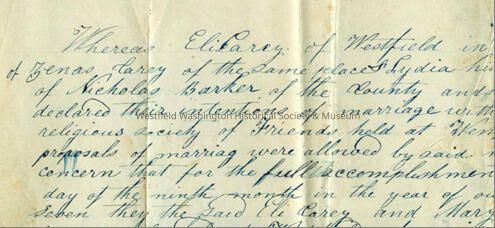 Whereas Eli Carey of Westfield in
of Zenas Carey of the same place & Lydia his
of Nicholas Barker of the County and
declared their intentions of marriage with
religious society of Friends held at
Westfield Washington Historical Society & Museum
proposals of marriag were allowed by said
concern that for the full accomplishmen
day of the ninth month in the year of ou
Seven they the said Eli Carey and Mary